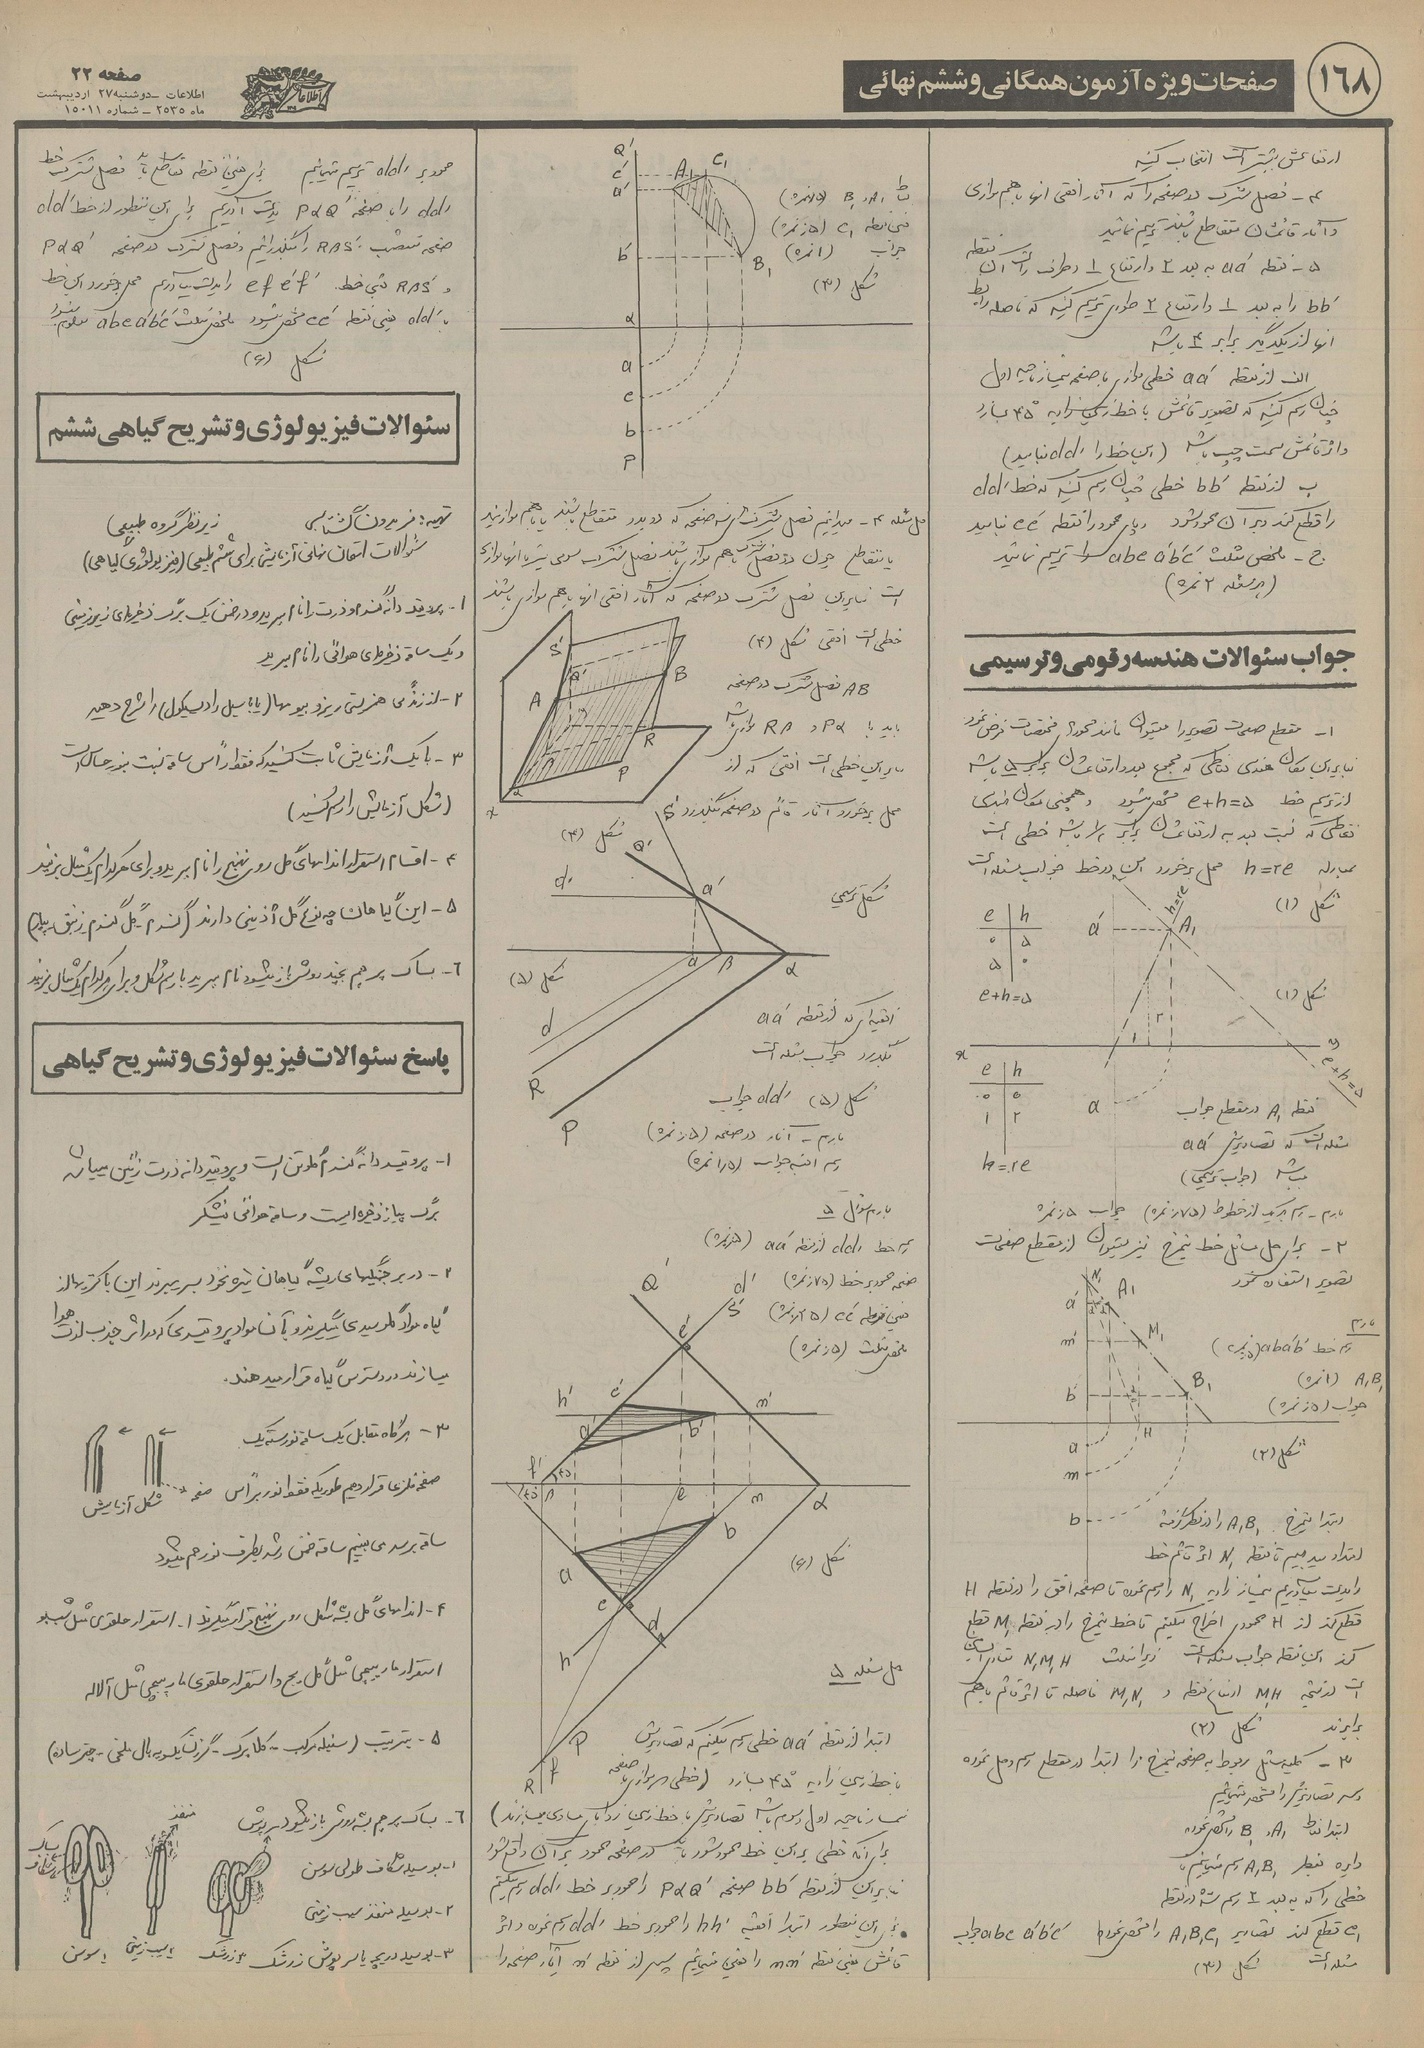 ۱۶۸
صفحات ویژه آزمون همگانی و ششم نهائی
صفحه ۲۲
اطلاعات ـ دوشنبه ۲۷ اردیبهشت
ماه ۲۵۳۵ ـ شماره ۱۵۰۱۱
اطلاعات
ارتفاعش بیشتر است انتخاب کنید
۴ـ فصل مشترک دو صفحه را که آثار افقی آنها با هم موازی
و آثار قائمشان متقاطع باشند ترسیم نمائید
۵ـ نقطه aa' به بعد ۲ و ارتفاع ۱ و طرف راست آن نقطه
bb' را به بعد ۱ و ارتفاع ۲ طوری ترسیم کنید که فاصله رابط
آنها از یکدیگر برابر ۴ باشد
الف از نقطه aa' خطی موازی با صفحه نیمساز ناحیه اول
چنان رسم کنید که تصویر قائمش با خط زمین زاویه ۴۵° بسازد
و اثر قائمش سمت چپ باشد (این خط را dd' بنامید)
ب از نقطه bb' خطی چنان رسم کنید که خط dd'
را قطع کند و بر آن عمود شود و پای عمود را نقطه cc' بنامید
ج ـ ملخص مثلث abc a'b'c' را ترسیم نمائید
(هر مسئله ۲ نمره)
جواب سئوالات هندسه رقومی و ترسیمی
۱ـ مقطع صفحات تصویر را میتوان مانند محورهای مختصات فرض نمود
بنابراین مکان هندسی نقاطی که مجموع بعد و ارتفاعشان برابر ۵ باشد
از ترسیم خط e+h=۵ مشخص میشود و همچنین مکان هندسی
نقاطی که نسبت بعد به ارتفاعشان برابر ۱/۲ باشد خطی است
بمعادله h=۲e محل برخورد این دو خط جواب مسئله است
شکل (۱)
e h
۰ ۵
۵ ۰
e+h=۵
a' A₁ h=۲e
شکل (۱)
۱ ۲
x y
e+h=۵
e h
۰ ۰
۱ ۲
h=۲e
a
نقطه A₁ در مقطع جواب
مسئله است که تصاویرش aa'
میباشد (جواب ترسیمی)
بارم ـ رسم هریک از خطوط (۰٫۷۵ نمره) جواب ۰٫۵ نمره
۲ـ برای حل مسائل خط نیمرخ نیز میتوان از مقطع صفحات
تصویر استفاده نمود
N₁ A₁ a'
m' M₁
b' B₁
H
a
m
b
بارم
رسم خط aba'b' (۰٫۵ نمره)
A₁B₁ (۱ نمره)
جواب (۰٫۵ نمره)
شکل (۲)
ابتدا نیمرخ A₁B₁ را در نظر گرفته
امتداد میدهیم تا نقطه N₁ اثر قائم خط
را بدست بیاوریم نیمساز زاویه N₁ را رسم نموده تا صفحه افق را در نقطه H
قطع کند از H عمودی اخراج میکنیم تا خط نیمرخ را در نقطه M₁ قطع
کند این نقطه جواب مسئله است زیرا مثلث N₁M₁H متساوی‌الساقین
است در نتیجه M₁H ارتفاع نقطه و M₁N₁ فاصله تا اثر قائم با هم
برابرند شکل (۲)
۳ـ کلیه مسائل مربوط به صفحه نیمرخ را ابتدا در مقطع رسم و حل نموده
و سپس تصاویرش را مشخص مینمائیم
ابتدا نقاط A₁ و B₁ را مشخص نموده
دایره بقطر A₁B₁ رسم مینمائیم تا
خطی را که به بعد ۲ رسم شده در نقطه
C₁ قطع کند تصاویر A₁B₁C₁ را مشخص نموده abc a'b'c' جواب
مسئله است شکل (۳)
Q'
c' A₁ C₁
a'
b' B₁
α
a
c
b
P
نقاط A₁ و B₁ (۰٫۵ نمره)
تعیین نقطه C₁ (۰٫۵ نمره)
جواب (۱ نمره)
شکل (۳)
حل مسئله ۴ـ میدانیم فصل مشترک‌های سه صفحه که دو بدو متقاطع باشند یا با هم موازیند
یا متقاطع چون دو فصل مشترک با هم موازی باشند فصل مشترک سومی نیز با آنها موازی
است بنابراین فصل مشترک دو صفحه که آثار افقی آنها با هم موازی باشند
خطی است افقی شکل (۴)
S' Q' A B R P α x
AB فصل مشترک دو صفحه
باید با Pα و Rβ موازی باشد
بنابراین خطی است افقی که از
محل برخورد آثار قائم دو صفحه میگذرد
شکل (۴)
S' Q' d' a'
a β α
d R P
شکل ترسیمی
شکل (۵)
افقیه‌ای که از نقطه aa'
میگذرد جواب مسئله است
شکل (۵) dd' جواب
بارم ـ آثار دو صفحه (۰٫۵ نمره)
رسم افقیه جواب (۱٫۵ نمره)
بارم سئوال ۵
رسم خط dd' از نقطه aa' (۰٫۵ نمره)
صفحه عمود بر خط (۰٫۷۵ نمره)
تعیین نقطه cc' (۰٫۲۵ نمره)
ملخص مثلث (۰٫۵ نمره)
Q' d' S' e'
h' c' a' b' m'
f' ۴۵ ۴۵ β e m α
a b c d h
P f R
شکل (۶)
حل مسئله ۵
ابتدا از نقطه aa' خطی رسم میکنیم که تصاویرش
با خط زمین زاویه ۴۵° بسازد (خطی موازی با صفحه
نیمساز ناحیه اول و سوم باشد تصاویرش با خط زمین زوایای مساوی میسازند)
برای آنکه خطی بر این خط عمود شود باید در صفحه عمود بر آن واقع شود
بنابراین از نقطه bb' صفحه PαQ' را عمود بر خط dd' رسم میکنیم
برای این منظور ابتدا افقیه hh' را عمود بر خط dd' رسم نموده و اثر
قائمش یعنی نقطه mm' را تعیین مینمائیم پس از نقطه m' آثار صفحه را
عمود بر dd' ترسیم مینمائیم برای تعیین نقطه تقاطع باید فصل مشترک خط
dd' را با صفحه PαQ' بدست آوریم برای این منظور از خط dd'
صفحه منتصب RβS' را میگذرانیم و فصل مشترک دو صفحه PαQ'
و RβS' یعنی خط efe'f' را بدست میآوریم محل برخورد این خط
با dd' یعنی نقطه cc' مشخص میشود ملخص مثلث abca'b'c' معلوم میشود
شکل (۶)
سئوالات فیزیولوژی و تشریح گیاهی ششم
تهیه: فریدون گشتاسبی زیر نظر گروه طبیعی
سئوالات امتحان نهائی آزمایشی برای ششم طبیعی (فیزیولوژی گیاهی)
۱ـ پروتید دانه گندم و ذرت را نام ببرید و در ضمن یک برگ ذخیره‌ای زیرزمینی
و یک ساقه ذخیره‌ای هوائی را نام ببرید
۲ـ از زندگی همزیستی ریزوبیومها (یا باسیل رادیسیکول) را شرح دهید
۳ـ با یک آزمایش ثابت کنید که فقط رأس ساقه نسبت بنور حساس است
(شکل آزمایش را رسم کنید)
۴ـ اقسام استقرار اندامهای گل روی نهنج را نام ببرید و برای هر کدام یک مثال بزنید
۵ـ این گیاهان چه نوع گل آذینی دارند (گندم ـ گل گندم ـ زنبق ـ پیاز)
۶ـ بساک پرچم بچند روش باز میشود نام ببرید با رسم شکل و برای هر کدام یک مثال بزنید
پاسخ سئوالات فیزیولوژی و تشریح گیاهی
۱ـ پروتید دانه گندم گلوتن است و پروتید دانه ذرت زئین میباشد
برگ پیاز ذخیره است و ساقه هوائی نیشکر
۲ـ در برجستگیهای ریشه گیاهان تیره نخود بسر میبرند این باکتریها از
گیاه مواد گلوسیدی میگیرند و بآن مواد پروتیدی که در اثر جذب ازت هوا
میسازند در دسترس گیاه قرار میدهند.
۳ـ هرگاه مقابل یک ساقه نورسته یک
صفحه فلزی قرار دهیم طوریکه فقط نور بر رأس
صفحه
شکل آزمایش
ساقه برسد می‌بینیم ساقه ضمن رشد بطرف نور خم میشود
۴ـ اندامهای گل به شکل روی نهنج قرار میگیرند ۱ـ استقرار حلقوی مثل شب‌بو
استقرار مارپیچی مثل گل یخ و استقرار حلقوی مارپیچی مثل آلاله
۵ـ بترتیب (سنبله مرکب ـ کلاپرک ـ گرزن یکسویه بال ملخی ـ چتر ساده)
۶ـ بساک پرچم بسه روش باز میشود
۱ـ بوسیله شکاف طولی سوسن
۲ـ بوسیله منفذ سیب زمینی
۳ـ بوسیله دریچه یا سرپوش زرشک
سرپوش
منفذ
زرشک
سیب زمینی
سوسن